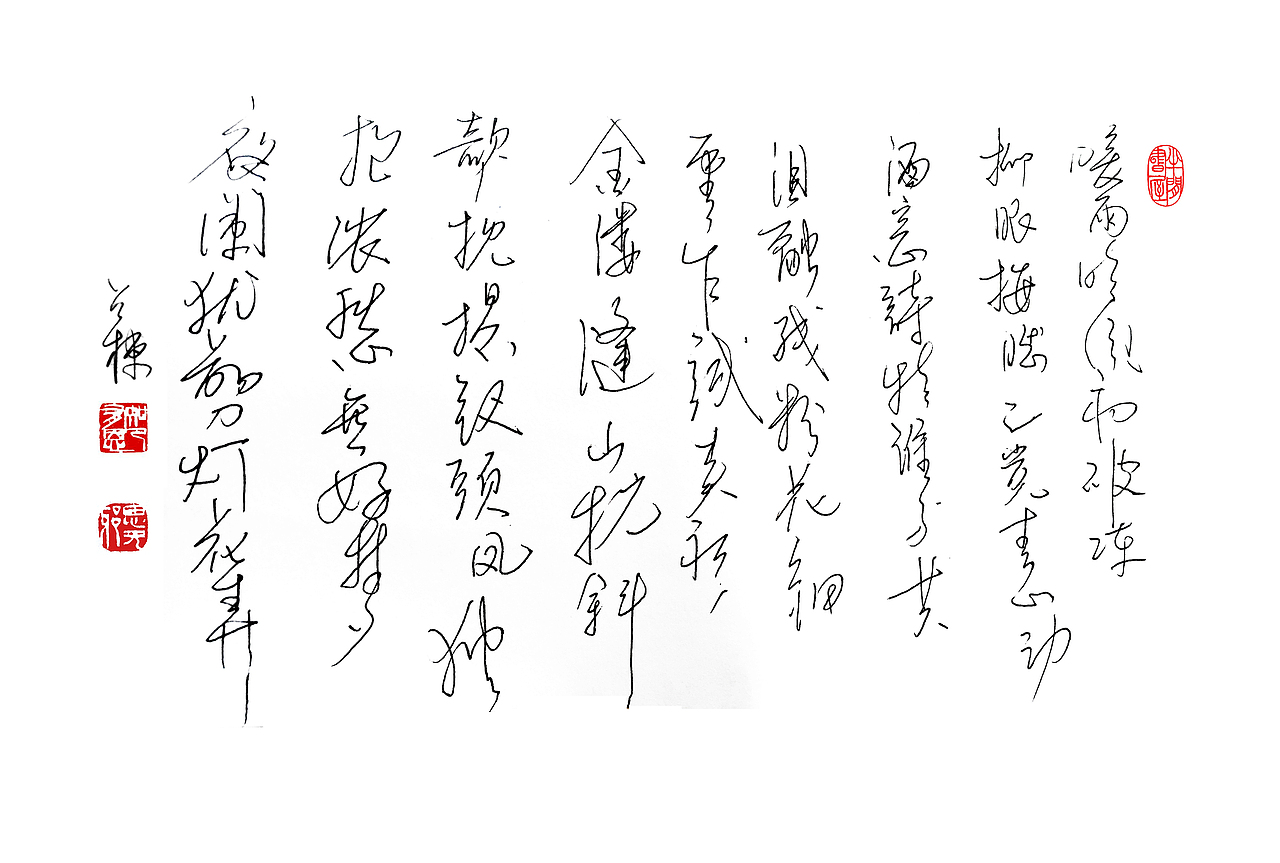 暖雨晴风初破冻
柳眼梅腮已觉春心动
酒意詩情谁与共
泪融残粉花钿
重乍试夹衫
金缕缝山枕斜
欹枕损钗頭凤独
抱浓愁無好梦
夜阑犹剪灯花弄